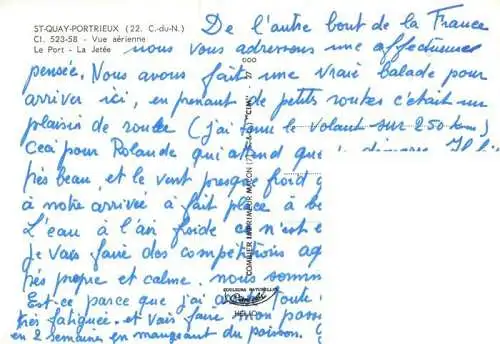 ST-QUAY-PORTRIEUX (22. C.-du-N.)
CI. 523-58 - Vue aérienne
Le Port - La Jetée
De l'autre bout de la France
nous vous adressons une affectueuse
pensée. Nous avons fait une vraie balade pour
arriver ici, en prenant de petites routes c'était un
plaisir de rouler (j'ai tenu le volant sur 250 km)
Ceci pour Rolande qui attend que
très beau, et le vent presque froid
à notre arrivée à fait place à
L'eau à l'air froide ce n'est
Je vais faire des compétitions
très propre et calme. nous sommes
Est-ce parce que j'ai toute
très fatiguée. et vais faire mon
en 2 semaines en mangeant du poisson.
COMBIER IMPRIMEUR MACON
"CIM"
COULEURS NATURELLES